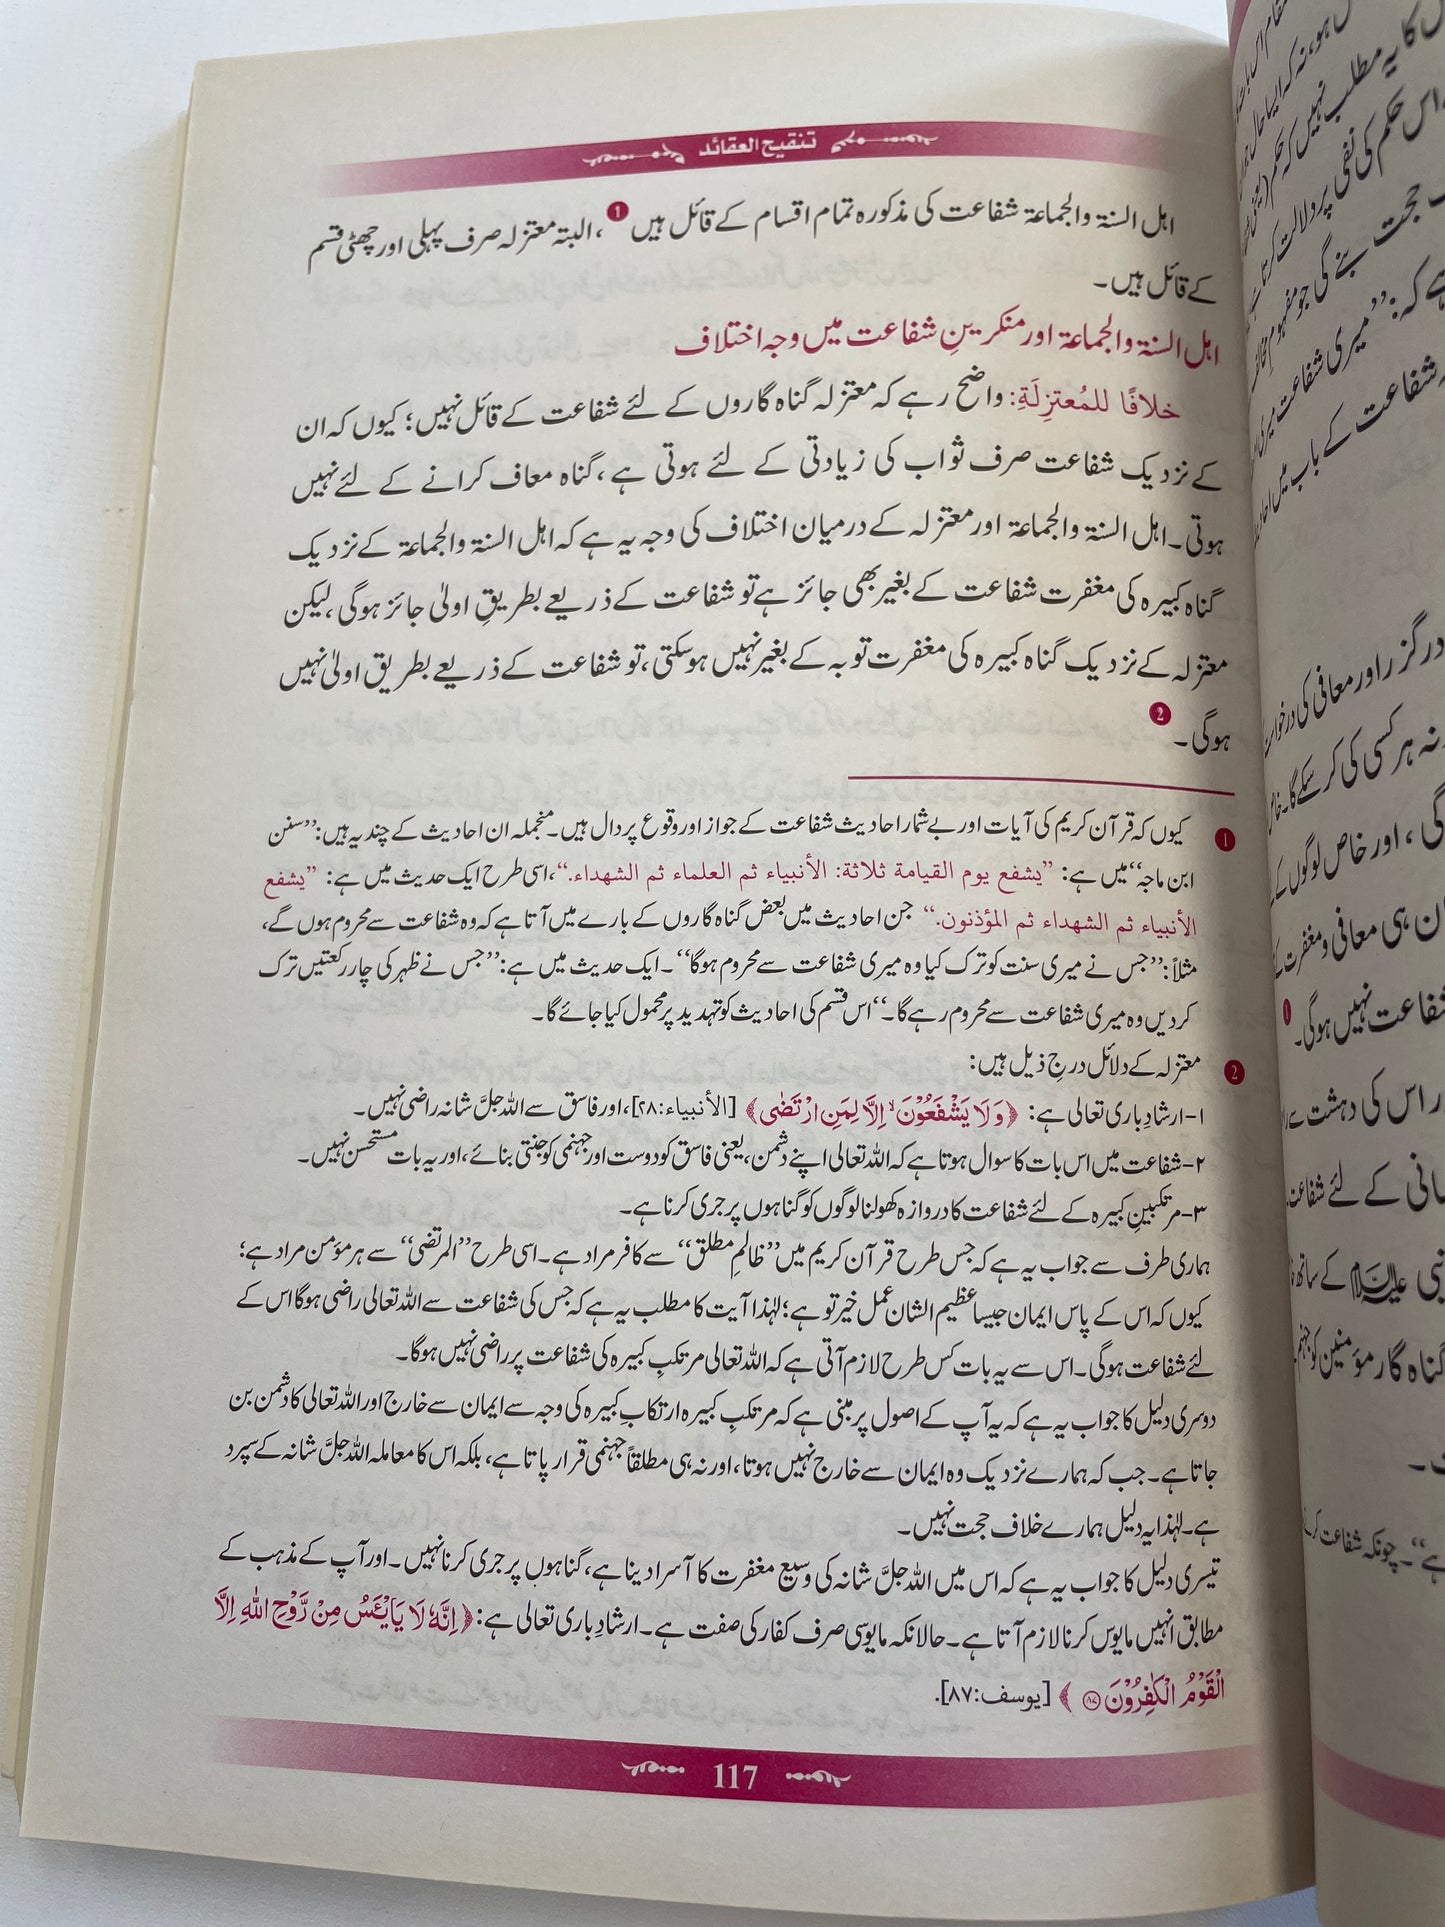 تنقیح العقائد
اہل السنۃ والجماعۃ شفاعت کی مذکورہ تمام اقسام کے قائل ہیں ❶، البتہ معتزلہ صرف پہلی اور چھٹی قسم
کے قائل ہیں۔
اہل السنۃ والجماعۃ اور منکرینِ شفاعت میں وجہ اختلاف
خلافًا للمُعتزِلَةِ: واضح رہے کہ معتزلہ گناہ گاروں کے لئے شفاعت کے قائل نہیں؛ کیوں کہ ان
کے نزدیک شفاعت صرف ثواب کی زیادتی کے لئے ہوتی ہے، گناہ معاف کرانے کے لئے نہیں
ہوتی۔ اہل السنۃ والجماعۃ اور معتزلہ کے درمیان اختلاف کی وجہ یہ ہے کہ اہل السنۃ والجماعۃ کے نزدیک
گناہ کبیرہ کی مغفرت شفاعت کے بغیر بھی جائز ہے تو شفاعت کے ذریعے بطریقِ اولیٰ جائز ہوگی، لیکن
معتزلہ کے نزدیک گناہ کبیرہ کی مغفرت توبہ کے بغیر نہیں ہوسکتی، تو شفاعت کے ذریعے بطریق اولیٰ نہیں
ہوگی۔ ❷
❶ کیوں کہ قرآن کریم کی آیات اور بے شمار احادیث شفاعت کے جواز اور وقوع پر دال ہیں۔ منجملہ ان احادیث کے چند یہ ہیں: ’’سنن
ابن ماجہ‘‘ میں ہے: ’’یشفع یوم القیامة ثلاثة: الأنبیاء ثم العلماء ثم الشهداء.‘‘، اسی طرح ایک حدیث میں ہے: ’’یشفع
الأنبیاء ثم الشهداء ثم المؤذنون.‘‘ جن احادیث میں بعض گناہ گاروں کے بارے میں آتا ہے کہ وہ شفاعت سے محروم ہوں گے،
مثلاً: ’’جس نے میری سنت کو ترک کیا وہ میری شفاعت سے محروم ہوگا‘‘۔ ایک حدیث میں ہے: ’’جس نے ظہر کی چار رکعتیں ترک
کردیں وہ میری شفاعت سے محروم رہے گا۔‘‘ اس قسم کی احادیث کو تہدید پر محمول کیا جائے گا۔
❷ معتزلہ کے دلائل درجِ ذیل ہیں:
۱- ارشادِ باری تعالی ہے: ﴿وَلَا يَشْفَعُوْنَ ۙ اِلَّا لِمَنِ ارْتَضٰى﴾ [الأنبیاء:۲۸]، اور فاسق سے اللہ جلَّ شانہ راضی نہیں۔
۲- شفاعت میں اس بات کا سوال ہوتا ہے کہ اللہ تعالی اپنے دشمن، یعنی فاسق کو دوست اور جہنمی کو جنتی بنائے، اور یہ بات مستحسن نہیں۔
۳- مرتکبینِ کبیرہ کے لئے شفاعت کا دروازہ کھولنا لوگوں کو گناہوں پر جری کرنا ہے۔
ہماری طرف سے جواب یہ ہے کہ جس طرح قرآن کریم میں ’’ظالمِ مطلق‘‘ سے کافر مراد ہے۔ اسی طرح ’’المرتضی‘‘ سے ہر مؤمن مراد ہے؛
کیوں کہ اس کے پاس ایمان جیسا عظیم الشان عمل خیر تو ہے؛ لہٰذا آیت کا مطلب یہ ہے کہ جس کی شفاعت سے اللہ تعالی راضی ہوگا اس کے
لئے شفاعت ہوگی۔ اس سے یہ بات کس طرح لازم آتی ہے کہ اللہ تعالی مرتکبِ کبیرہ کی شفاعت پر راضی نہیں ہوگا؟
دوسری دلیل کا جواب یہ ہے کہ یہ آپ کے اصول پر مبنی ہے کہ مرتکبِ کبیرہ ارتکابِ کبیرہ کی وجہ سے ایمان سے خارج اور اللہ تعالی کا دشمن بن
جاتا ہے۔ جب کہ ہمارے نزدیک وہ ایمان سے خارج نہیں ہوتا، اور نہ ہی مطلقاً جہنمی قرار پاتا ہے، بلکہ اس کا معاملہ اللہ جلَّ شانہ کے سپرد
ہے۔ لہٰذا یہ دلیل ہمارے خلاف حجت نہیں۔
تیسری دلیل کا جواب یہ ہے کہ اس میں اللہ جلَّ شانہ کی وسیع مغفرت کا آسرا دینا ہے، گناہوں پر جری کرنا نہیں۔ اور آپ کے مذہب کے
مطابق انہیں مایوس کرنا لازم آتا ہے۔ حالانکہ مایوسی صرف کفار کی صفت ہے۔ ارشادِ باری تعالی ہے: ﴿اِنَّهٗ لَا يَايْـَٔسُ مِنْ رَّوْحِ اللّٰهِ اِلَّا
الْقَوْمُ الْكٰفِرُوْنَ ۝۸۷﴾ [یوسف:۸۷].
117